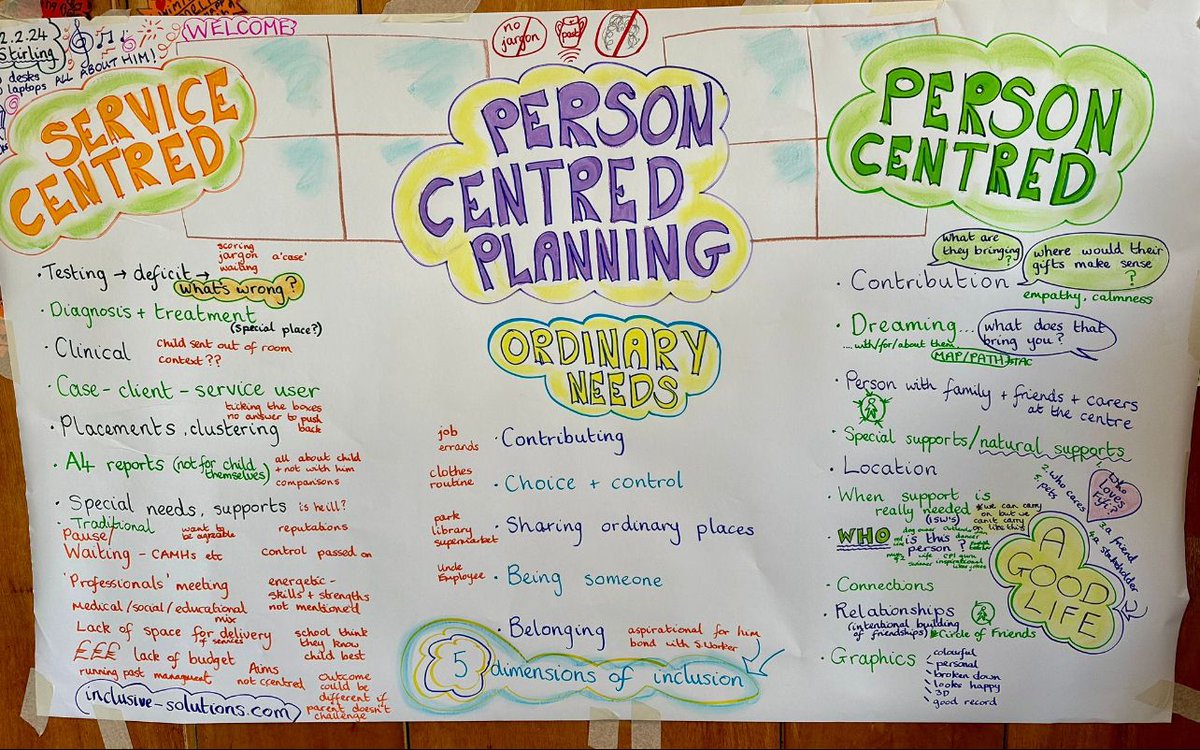 2.2.24
Stirling
desks
laptops
ALL ABOUT HIM!
WELCOME
no
jargon
post
SERVICE
CENTRED
PERSON
CENTRED
PLANNING
PERSON
CENTRED
scoring
jargon
waiting
a 'case'
· Testing → deficit →
what's wrong?
· Diagnosis + treatment
(special place?)
· Clinical
child sent out of room
context??
· Case - client - service user
ticking the boxes
no answer to push
back
· Placements, clustering
· A4 reports (not for child
themselves)
all about child
+ not with him
comparisons
· Special needs, supports
is he ill?
· Traditional
Pause/
Waiting - CAMHs etc
want to
be agreeable
reputations
control passed on
'Professionals' meeting
energetic -
skills + strengths
not mentioned
Medical/social/educational
mix
Lack of space for delivery
of services
school think
they know
child best
£££ lack of budget
running past management
Aims
not ccentred
outcome
could be
different if
parent doesn't
challenge
inclusive-solutions.com
ORDINARY
NEEDS
job
errands
· Contributing
clothes
routine
· Choice + control
park
library
supermarket
· Sharing ordinary places
Uncle
Employee
· Being someone
· Belonging
aspirational for him
bond with S.Worker
5 dimensions of inclusion
what are
they bringing
?
where would their
gifts make sense
?
· Contribution
empathy, calmness
· Dreaming...
what does that
bring you?
.... with/for/about them
MAP/PATH
· Person with family + friends + carers
at the centre
· Special supports/natural supports
· Location
· When support is
really needed
(ISW's)
*we can carry
on but we
can't carry
on like this
1. who
loves
Fifi?
2. who cares
5. pets
3. a friend
4. a stakeholder
· WHO is this
person?
dancer
wife
swimmer
inspirational
· Connections
· Relationships
(intentional building
of friendships)
*Circle of Friends
· Graphics
- colourful
- personal
- broken down
- looks happy
- 3D
- good record
A
GOOD
LIFE